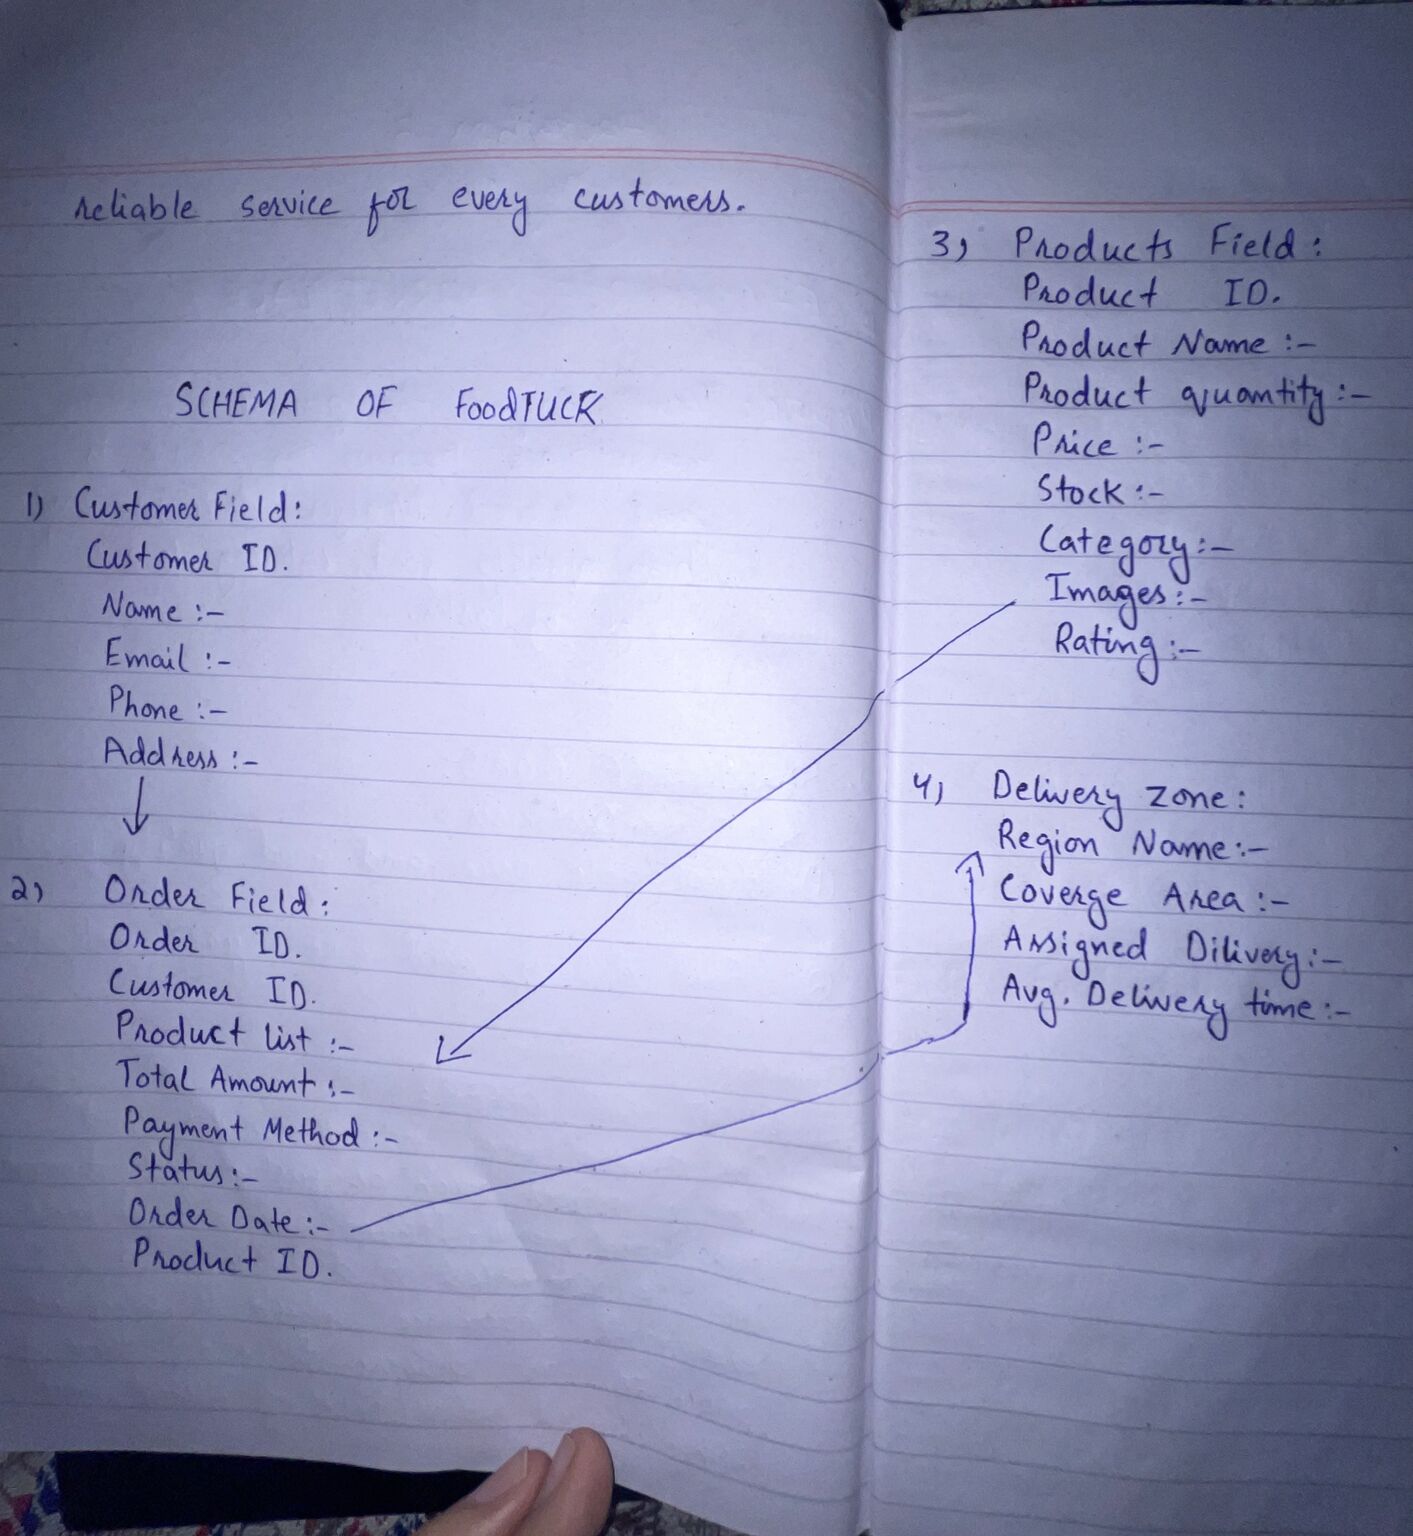 reliable service for every customers.
SCHEMA OF FoodTUCK
1) Customer Field:
Customer ID.
Name :-
Email :-
Phone :-
Address :-
2) Order Field:
Order ID.
Customer ID.
Product list :-
Total Amount :-
Payment Method :-
Status :-
Order Date :-
Product ID.
3) Products Field:
Product ID.
Product Name :-
Product quantity :-
Price :-
Stock :-
Category :-
Images :-
Rating :-
4) Delivery zone:
Region Name :-
Coverge Area :-
Assigned Dilivery :-
Avg. Delivery time :-